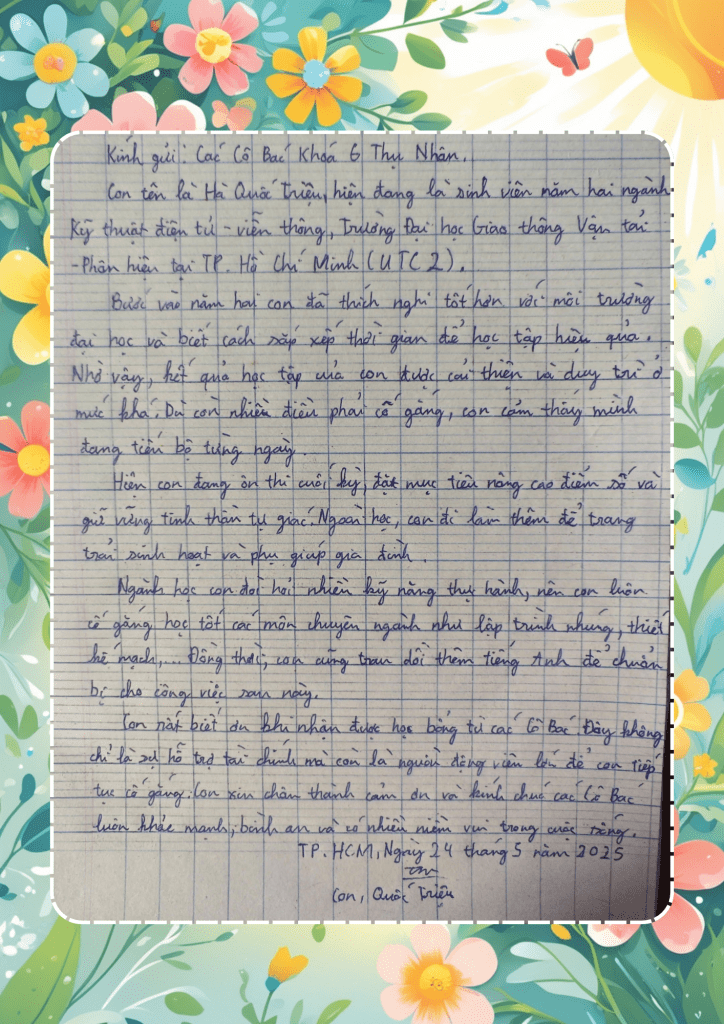 Kính gửi: Các Cô Bác Khoá 6 Thụ Nhân.
Con tên là Hà Quốc Triệu, hiện đang là sinh viên năm hai ngành
Kỹ thuật điện tử - viễn thông, Trường Đại học Giao thông Vận tải
- Phân hiệu tại TP. Hồ Chí Minh (UTC2).
Bước vào năm hai con đã thích nghi tốt hơn với môi trường
đại học và biết cách sắp xếp thời gian để học tập hiệu quả.
Nhờ vậy, kết quả học tập của con được cải thiện và duy trì ở
mức khá. Dù còn nhiều điều phải cố gắng, con cảm thấy mình
đang tiến bộ từng ngày.
Hiện con đang ôn thi cuối kỳ, đặt mục tiêu nâng cao điểm số và
giữ vững tinh thần tự giác. Ngoài học, con đi làm thêm để trang
trải sinh hoạt và phụ giúp gia đình.
Ngành học con đòi hỏi nhiều kỹ năng thực hành, nên con luôn
cố gắng học tốt các môn chuyên ngành như lập trình nhúng, thiết
kế mạch,... Đồng thời, con cũng trau dồi thêm tiếng Anh để chuẩn
bị cho công việc sau này.
Con rất biết ơn khi nhận được học bổng từ các Cô Bác. Đây không
chỉ là sự hỗ trợ tài chính mà còn là nguồn động viên lớn để con tiếp
tục cố gắng. Con xin chân thành cảm ơn và kính chúc các Cô Bác
luôn khỏe mạnh, bình an và có nhiều niềm vui trong cuộc sống.
TP. HCM, Ngày 24 tháng 5 năm 2025
Con, Quốc Triệu